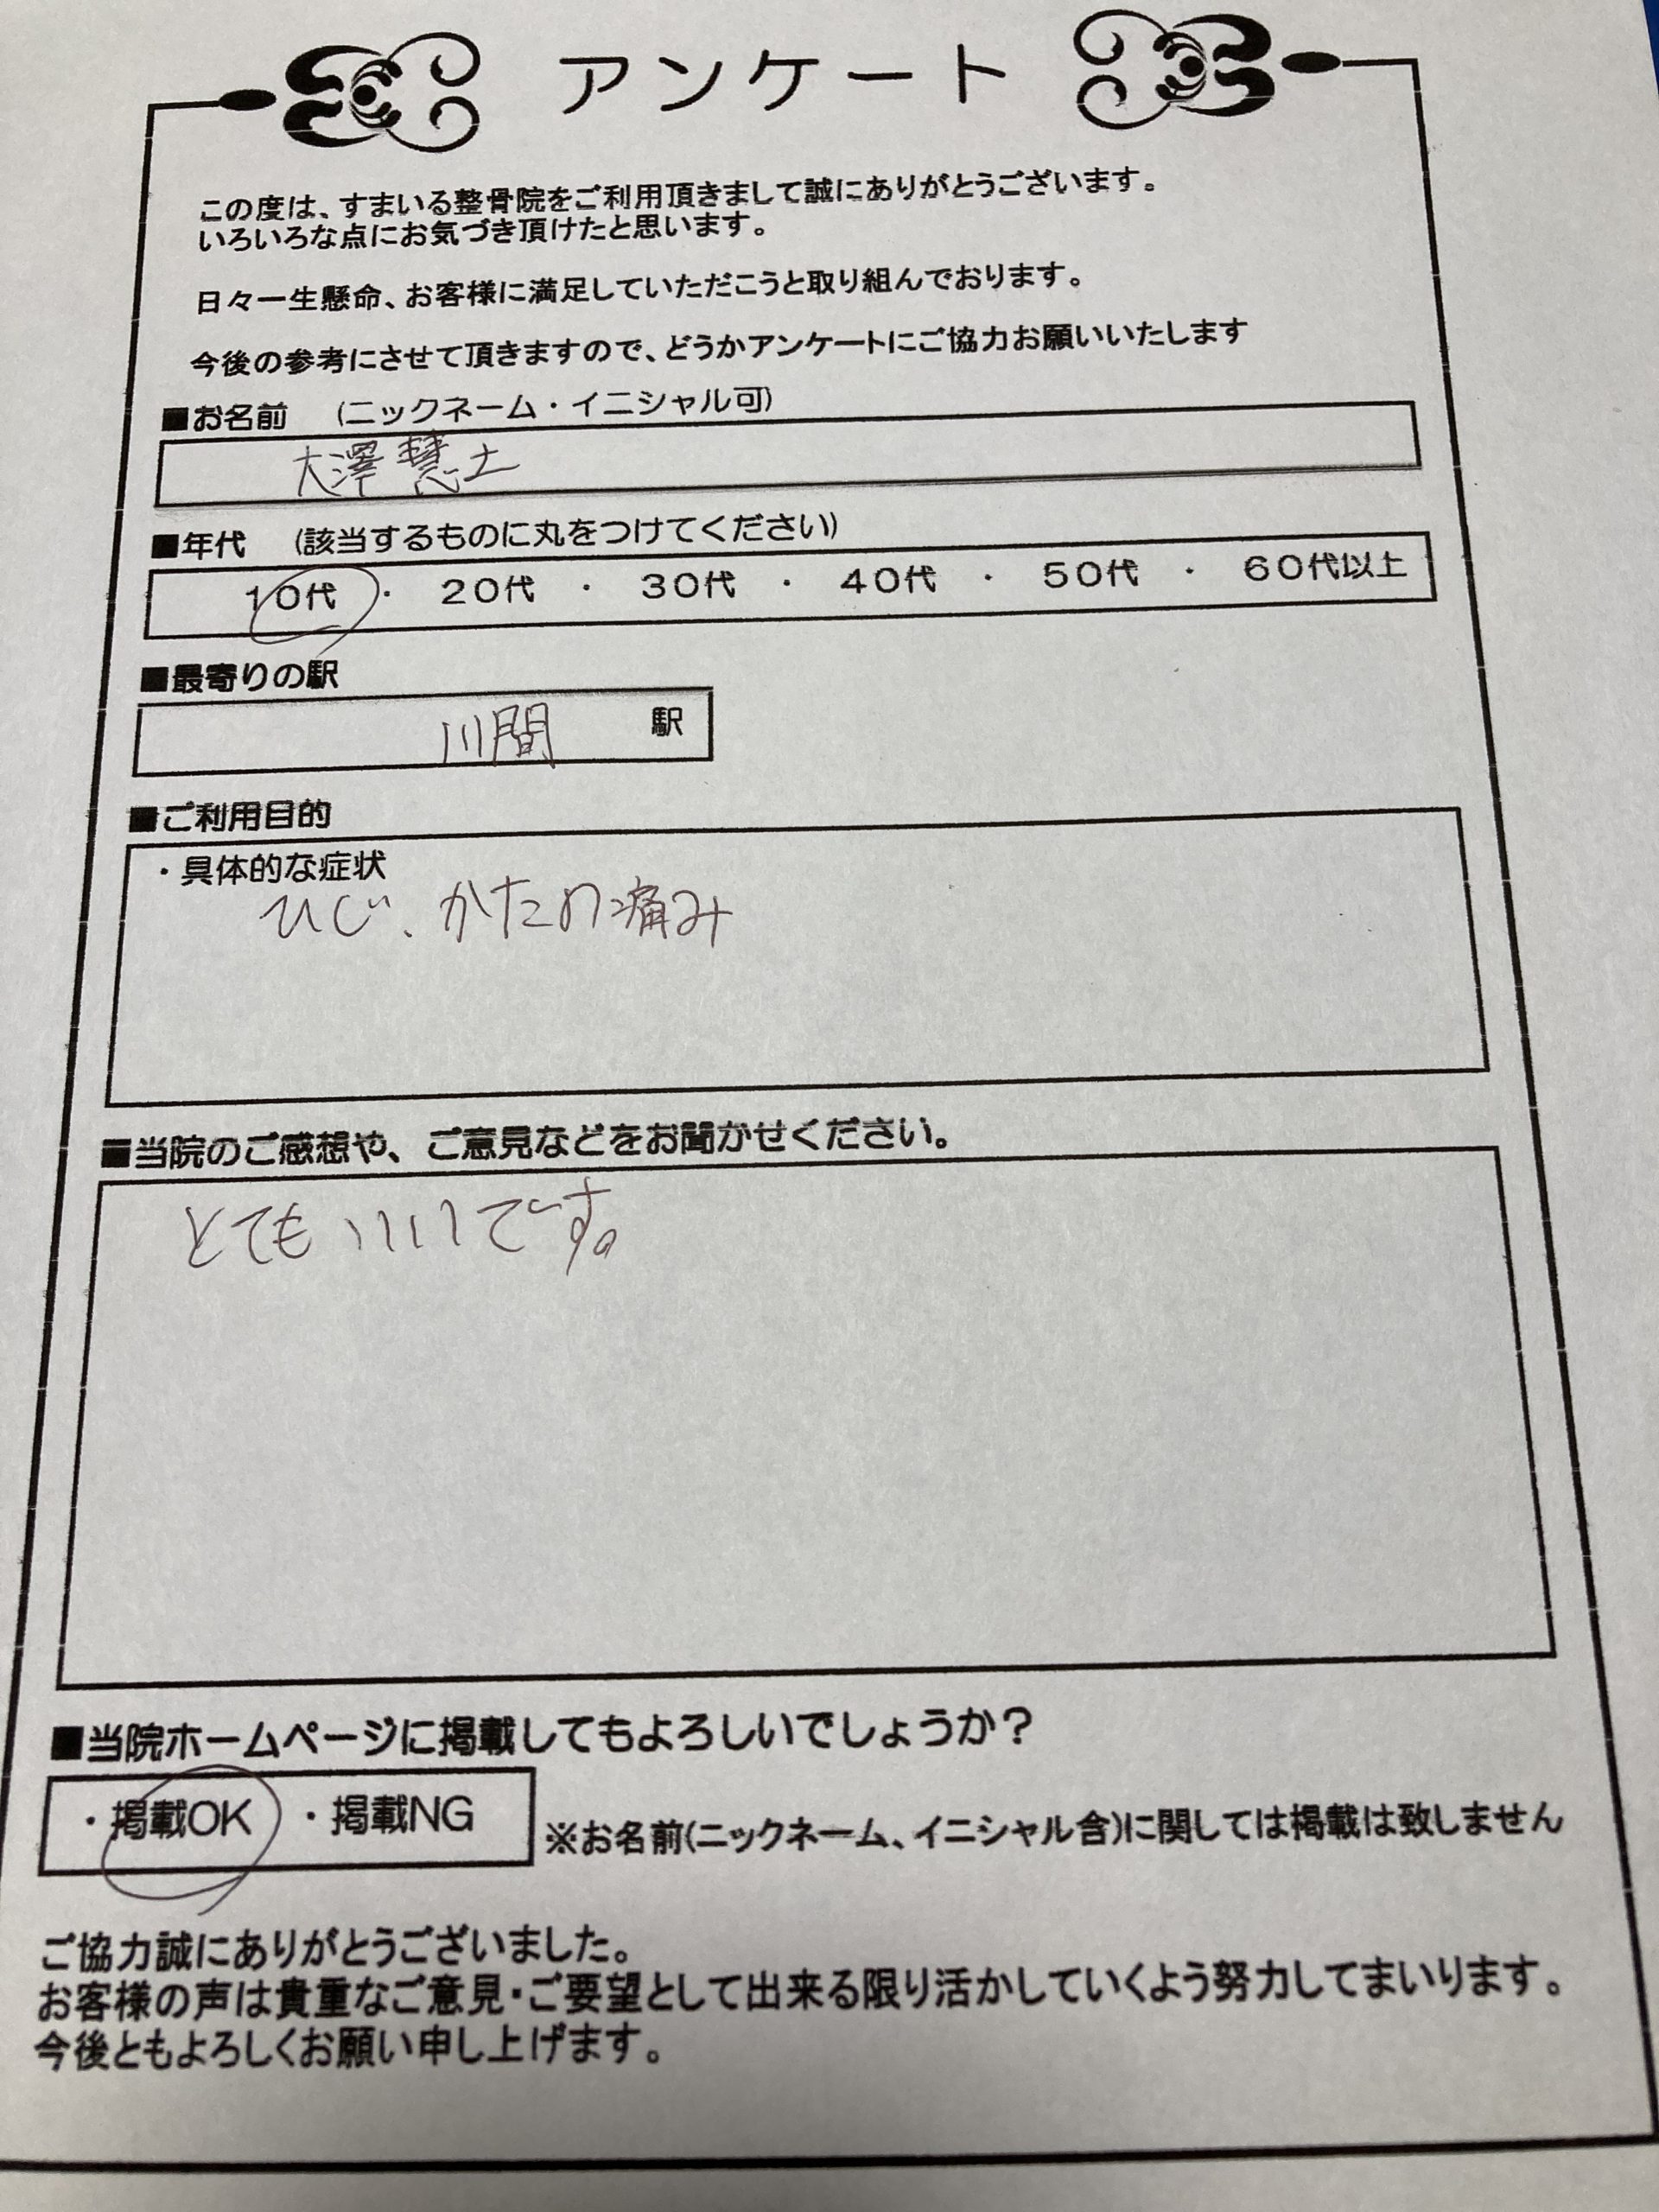 アンケート
この度は、すまいる整骨院をご利用頂きまして誠にありがとうございます。
いろいろな点にお気づき頂けたと思います。
日々一生懸命、お客様に満足していただこうと取り組んでおります。
今後の参考にさせて頂きますので、どうかアンケートにご協力お願いいたします
■お名前 (ニックネーム・イニシャル可)
大澤慧士
■年代 (該当するものに丸をつけてください)
10代 ・ 20代 ・ 30代 ・ 40代 ・ 50代 ・ 60代以上
■最寄りの駅
川間 駅
■ご利用目的
・具体的な症状
ひじ、かたの痛み
■当院のご感想や、ご意見などをお聞かせください。
とてもいいです。
■当院ホームページに掲載してもよろしいでしょうか？
・掲載OK ・掲載NG ※お名前(ニックネーム、イニシャル含)に関しては掲載は致しません
ご協力誠にありがとうございました。
お客様の声は貴重なご意見・ご要望として出来る限り活かしていくよう努力してまいります。
今後ともよろしくお願い申し上げます。